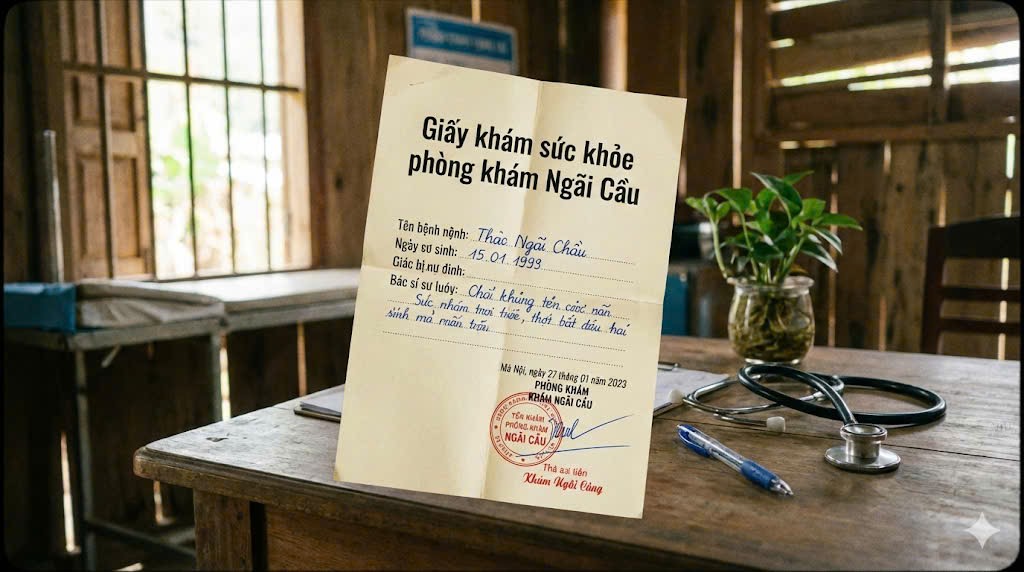 Giấy khám sức khỏe
phòng khám Ngãi Cầu
Tên bệnh nệnh: Thảo Ngãi Chầu
Ngày sơ sinh: 15.01.1993
Giác bị nư đinh:
Bác sí sư luớy: Chái khủng tến cước nãn
Sưc nhám mơi trớc, thơt bất dấu hai
sinh mả mấn trớn
Mà Nội, ngày 27 tháng 01 năm 2023
PHÒNG KHÁM
KHÁM NGÃI CẦU
TÊN KHÁM
PHÒNG KHÁM
NGÃI CẦU
Thả ai tiên
Khúm Ngãi Câng